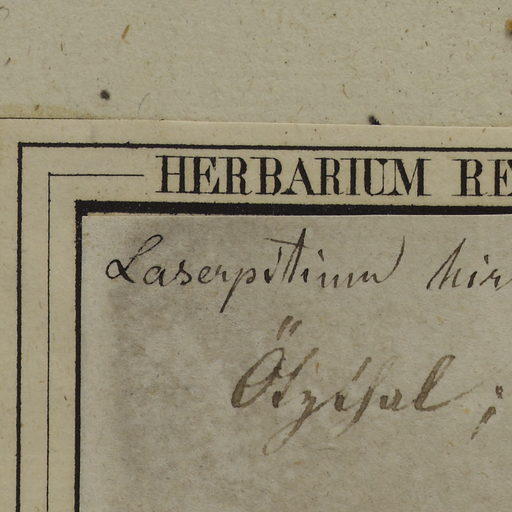 HERBARIUM RE
Laserpitium hir
Ötzthal;